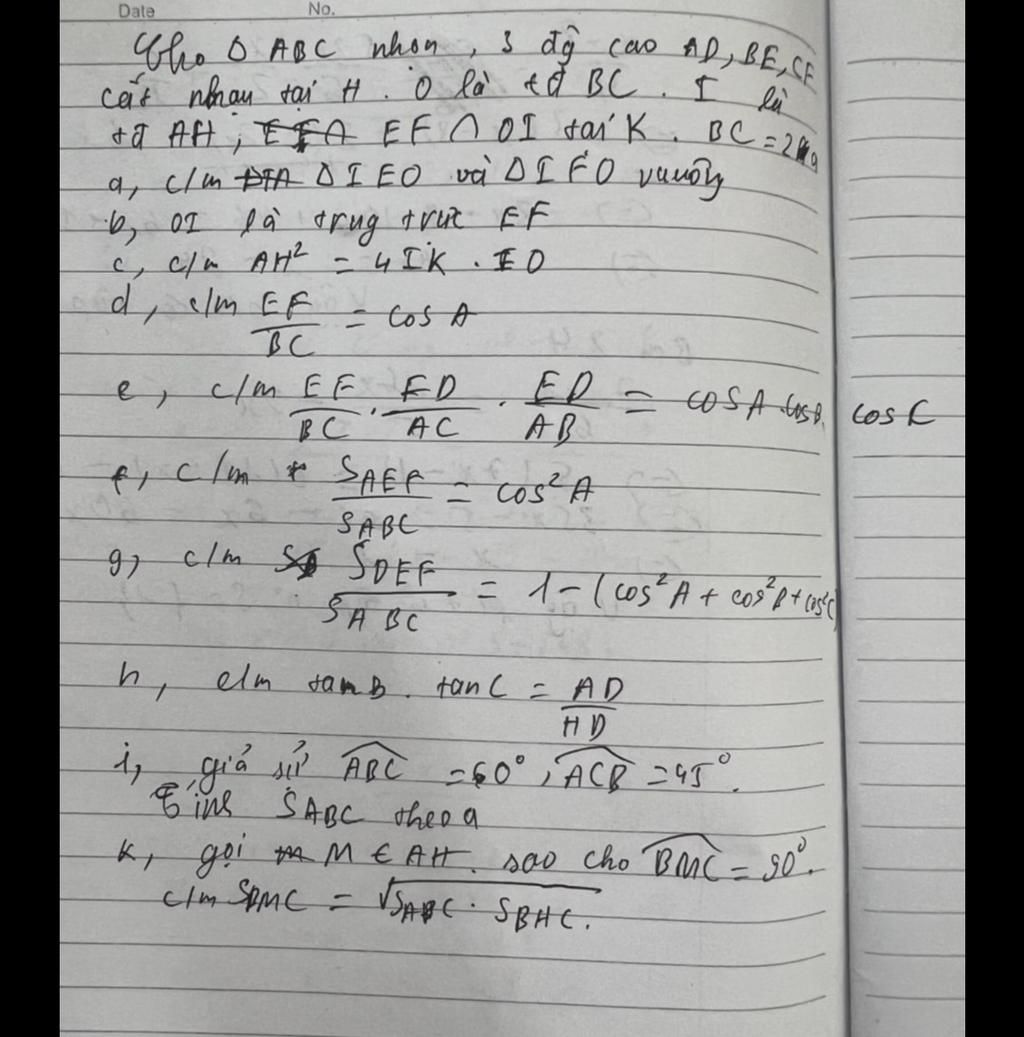 Date No.
Cho Δ ABC nhọn , 3 đg cao AD, BE, CF
cắt nhau tại H . O là tđ BC . I là
tđ AH ; EF ∩ OI tại K . BC = 2a
a, c/m Δ IEO và Δ IFO vuuông
b, OI là trug trực EF
c, c/m AH² = 4 IK . IO
d, c/m EF/BC = cos A
e, c/m EF/BC . FD/AC . ED/AB = cos A . cosB. cos C
f, c/m S AEF / S ABC = cos² A
g, c/m S DEF / S ABC = 1 - (cos² A + cos² B + cos² C)
h, c/m tan B . tan C = AD/HD
i, giả sử ABC = 60° , ACB = 45° .
Tính S ABC theo a
k, gọi M ∈ AH sao cho BMC = 90° .
c/m S BMC = √S ABC . S BHC .